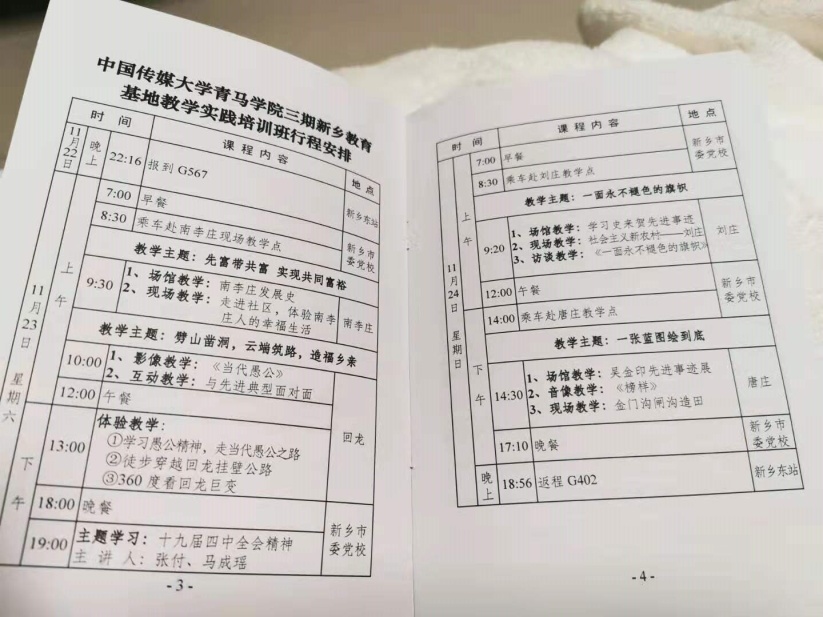 中国传媒大学青马学院三期新乡教育
基地教学实践培训班行程安排
时 间 课程内容 地点
11月22日 晚上 22:16 报到 G567 新乡东站
11月23日 星期六
上午
7:00 早餐 新乡市委党校
8:30 乘车赴南李庄现场教学点
教学主题：先富带共富 实现共同富裕
9:30 1、场馆教学：南李庄发展史
2、现场教学：走进社区，体验南李
庄人的幸福生活
南李庄
教学主题：劈山凿洞，云端筑路，造福乡亲
10:00 1、影像教学：《当代愚公》
2、互动教学：与先进典型面对面
12:00 午餐
回龙
下午
13:00 体验教学：
①学习愚公精神，走当代愚公之路
②徒步穿越回龙挂壁公路
③360 度看回龙巨变
18:00 晚餐
新乡市委党校
19:00 主题学习：十九届四中全会精神
主 讲 人：张付、马成瑶
- 3 -
时 间 课程内容 地点
11月24日 星期日
上午
7:00 早餐 新乡市委党校
8:30 乘车赴刘庄教学点
教学主题：一面永不褪色的旗帜
9:20 1、场馆教学：学习史来贺先进事迹
2、现场教学：社会主义新农村——刘庄
3、访谈教学：《一面永不褪色的旗帜》
刘庄
12:00 午餐 新乡市委党校
14:00 乘车赴唐庄教学点
下午
教学主题：一张蓝图绘到底
14:30 1、场馆教学：吴金印先进事迹展
2、音像教学：《榜样》
3、现场教学：金门沟闸沟造田
唐庄
17:10 晚餐 新乡市委党校
晚上 18:56 返程 G402 新乡东站
- 4 -